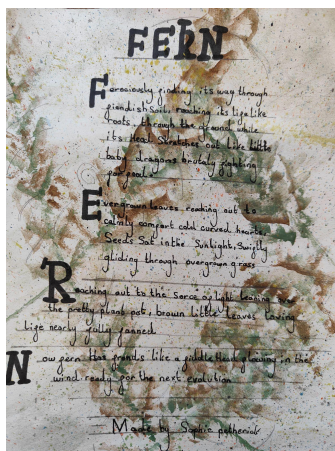 FERN
Ferociously finding its way through
fiendish soil, reaching its life like
roots, through the ground while
its head stretches out like little
baby dragons brutaly fighting
for food.
Evergrown leaves reaching out to
calmly comfort cold curved hearts,
Seeds Sat in the Sunlight, Swiftly
gliding through overgrown grass
Reaching out to the sorce of light leaning over
the pretty plant pot, brown little leaves
life nearly fully formed
Now fern Has fronds like a fiddle Head glowing in the
wind ready for the next evolution
Made by Sophie